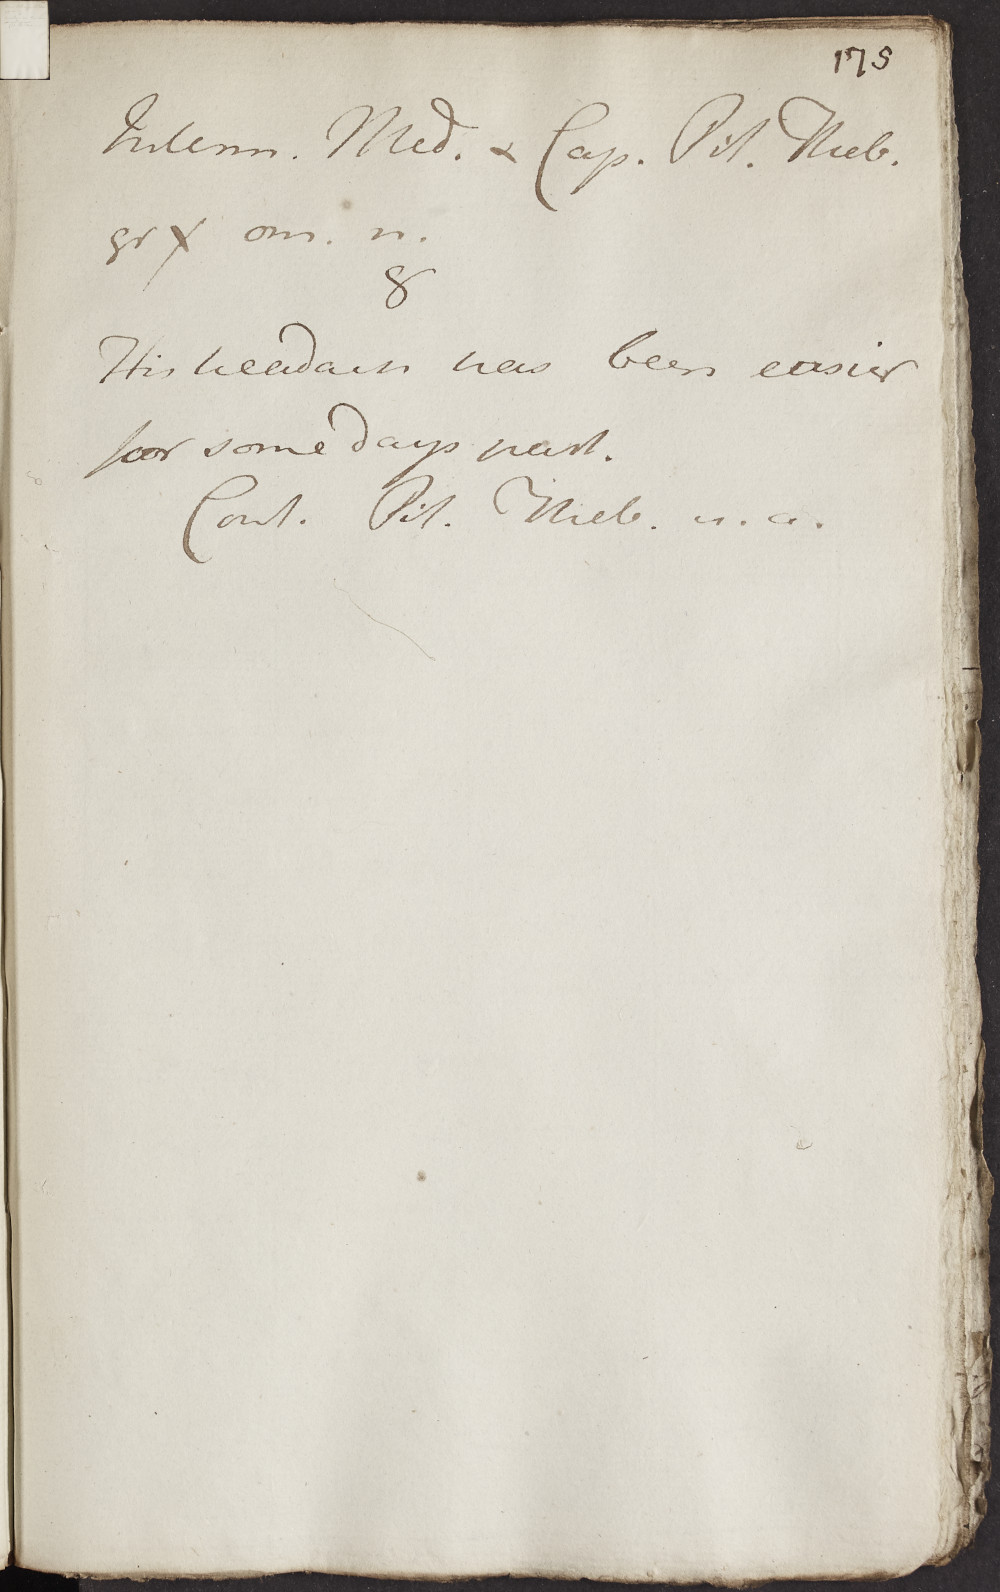 175
Interm. Med. & Cap. Pil. Theb.
gr x om. n.
8
His headach has been easier
for some days past.
Cont. Pil. Theb. u. a.